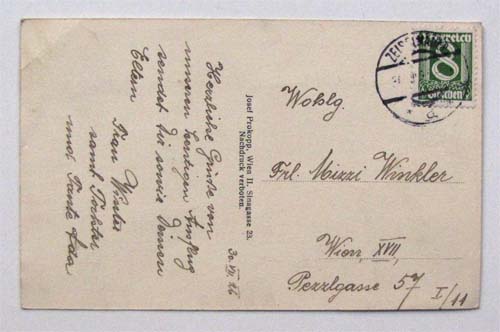 30. VII. 26
Herzliche Grüße von
unserem heutigen Ausflug
sendet dir sowie Deinen
Eltern
Frau Winter
samt Tochter
und Tante Ida
Josef Prokopp, Wien II. Sinagasse 23.
Nachdruck verboten.
Österreich
8
Groschen
Wohlg.
Frl. Mizzi Winkler
Wien, XVII,
Pezzlgasse 57
I/11